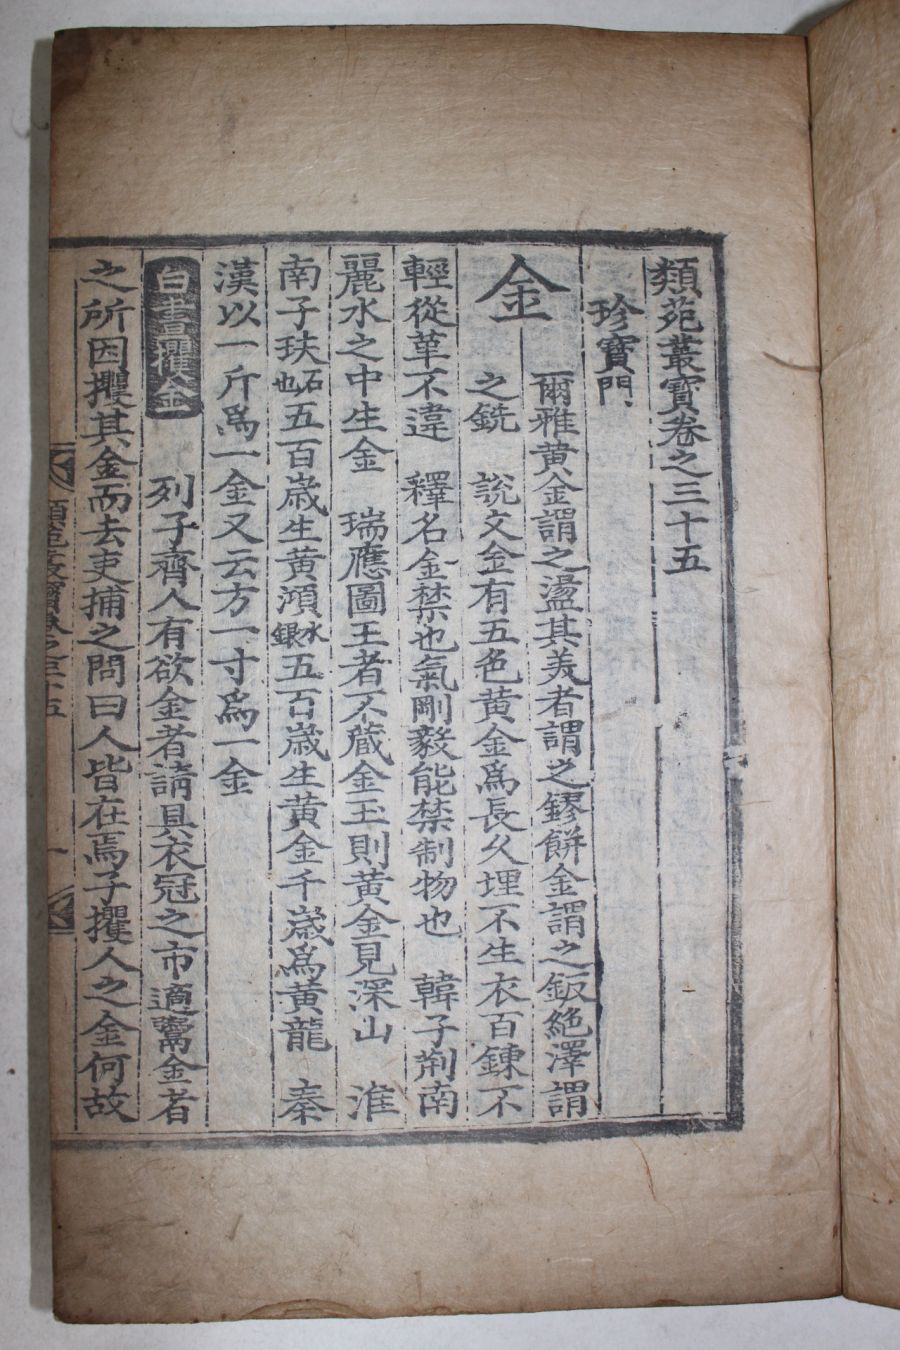 類苑叢寶卷之三十五
珍寶門
金
爾雅黃金謂之璗其美者謂之鏐餅金謂之鈑絶澤謂
之銑 說文金有五色黃金爲長久埋不生衣百鍊不
輕從革不違 釋名金禁也氣剛毅能禁制物也 韓子荊南
麗水之中生金 瑞應圖王者不藏金玉則黃金見深山 淮
南子玞石也五百歲生黃澒水銀五百歲生黃金千歲爲黃龍 秦
漢以一斤爲一金又云方一寸爲一金
白晝攫金 列子齊人有欲金者請具衣冠之市適鬻金者
之所因攫其金而去吏捕之問曰人皆在焉子攫人之金何故
類苑叢寶卷之三十五 一